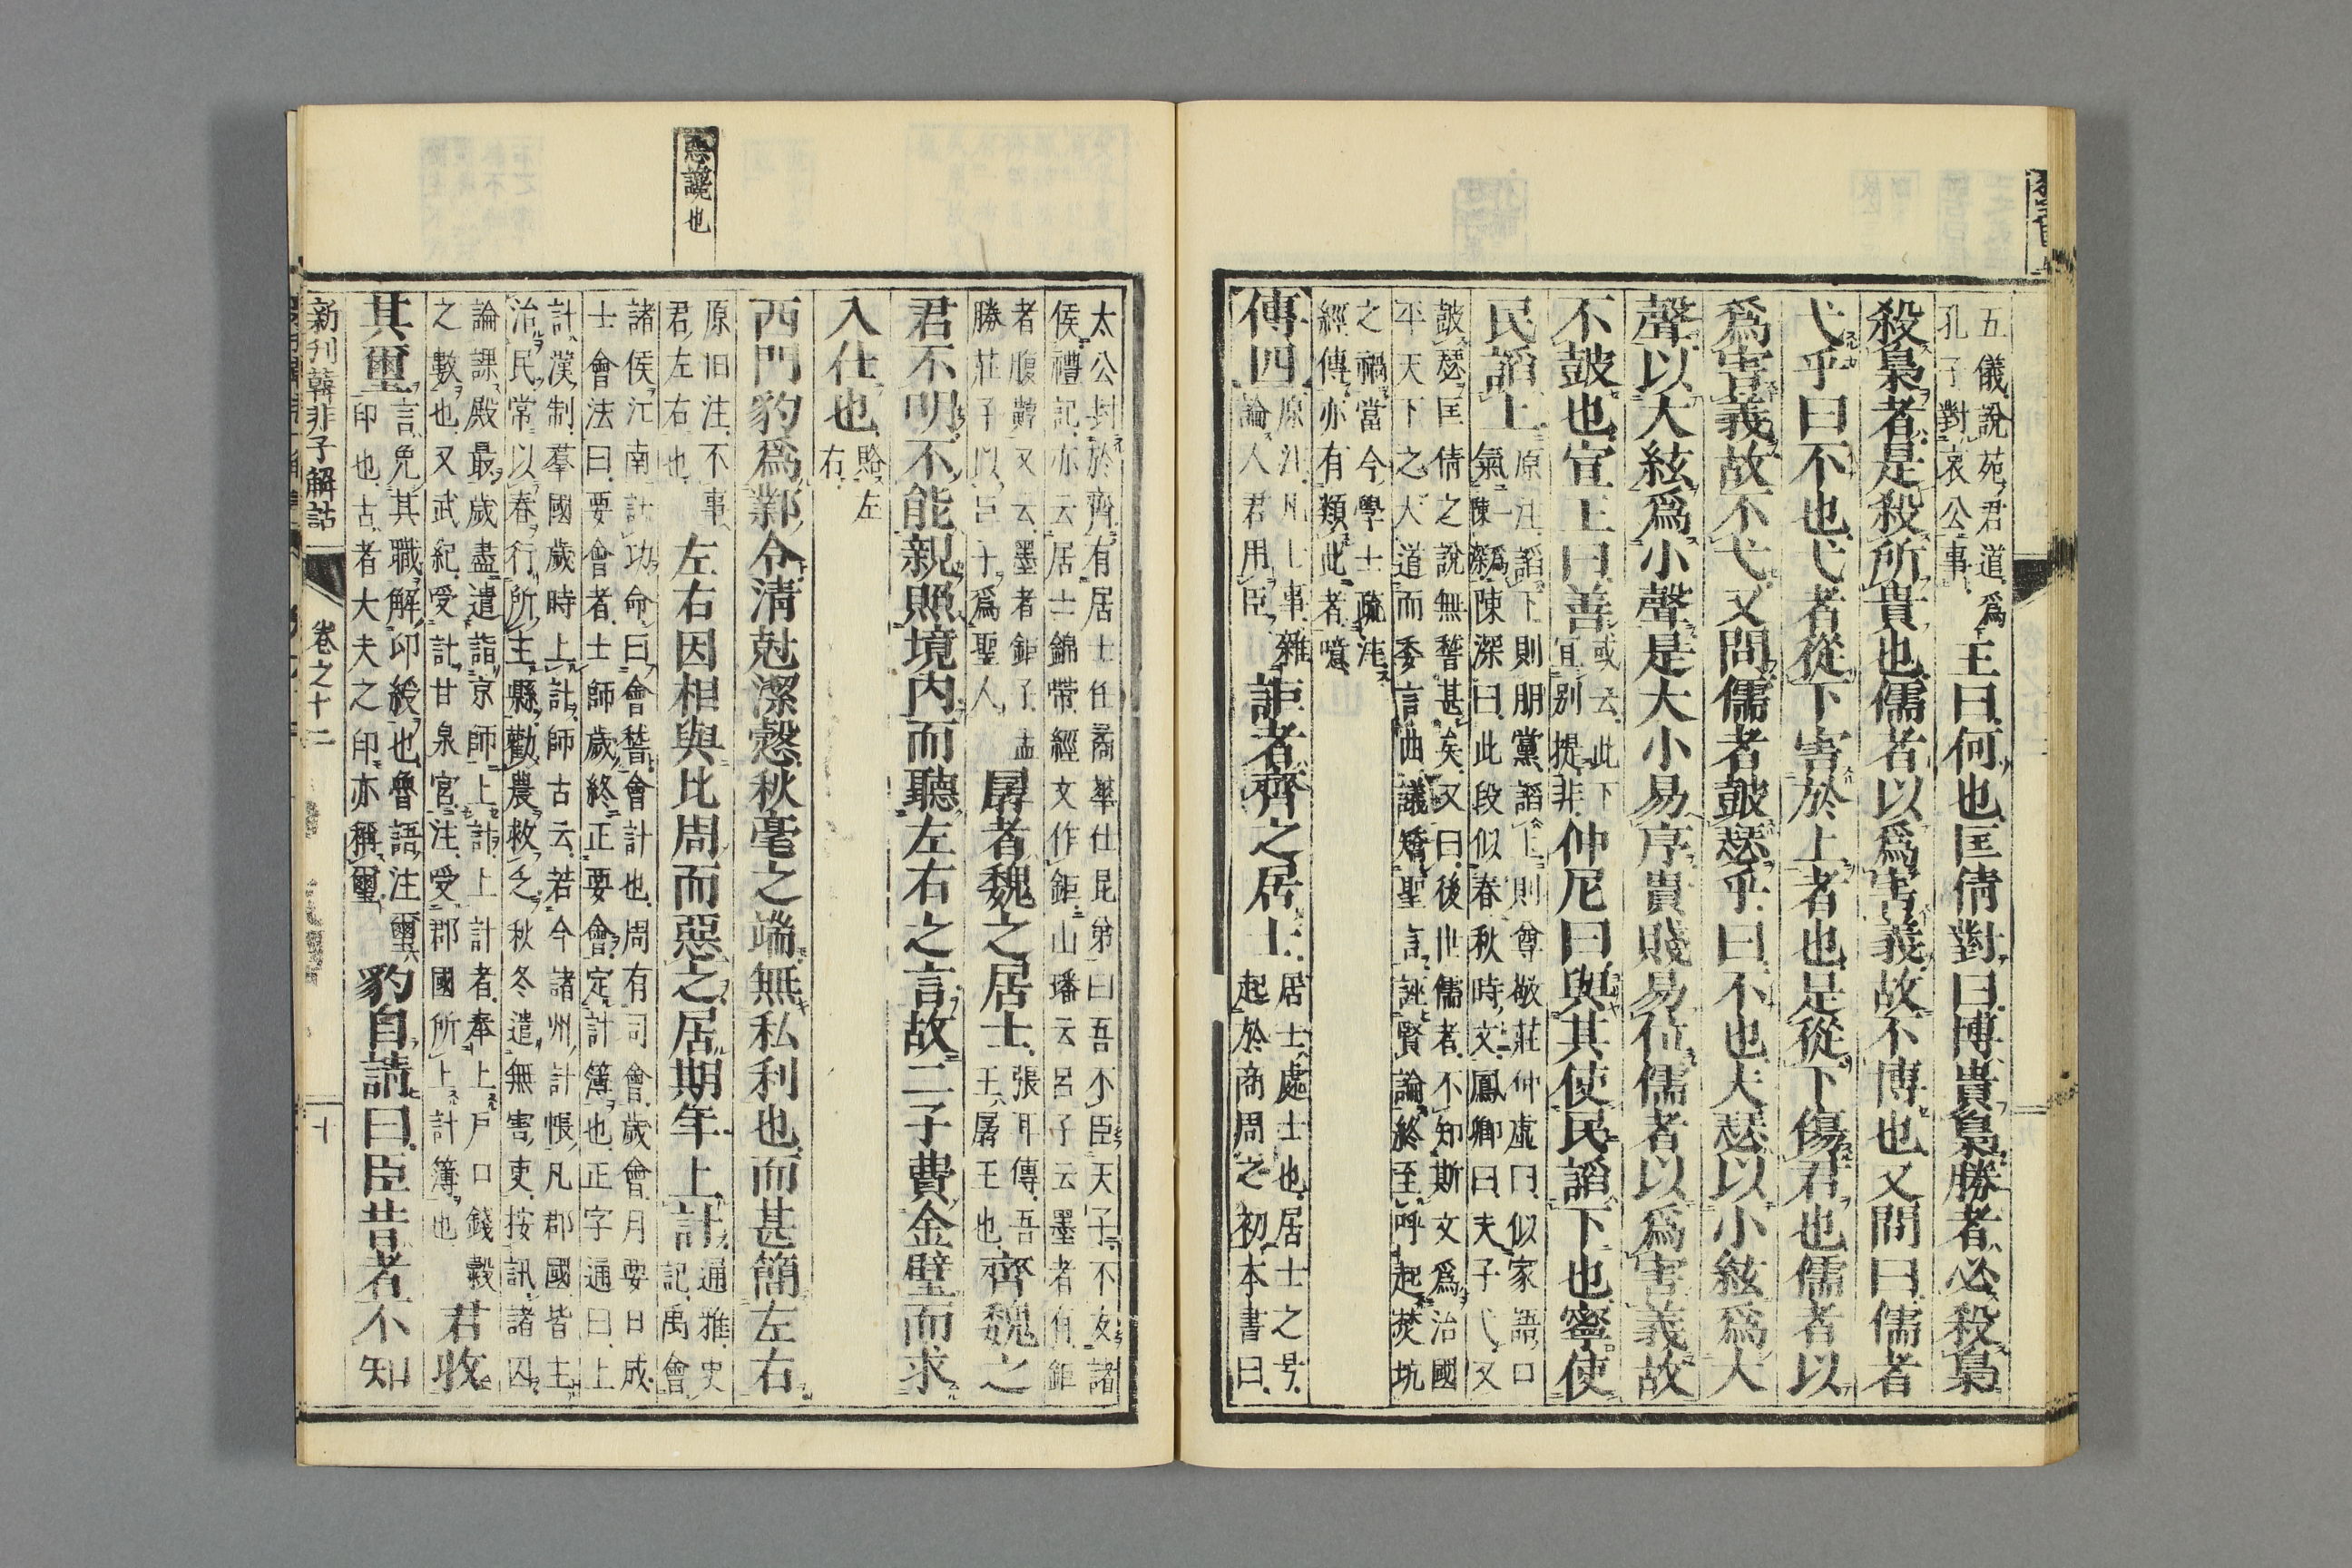 五儀說苑君道爲
孔子對哀公事
王曰何也匡倩對曰博貴梟勝者必殺梟
殺梟者是殺所貴也儒者以爲害義故不博也又問曰儒者
弋乎曰不也弋者從下害於上者也是從下傷君也儒者以
爲害義故不弋又問儒者皷瑟乎曰不也夫瑟以小絃爲大
聲以大絃爲小聲是大小易序貴賤易位儒者以爲害義故
不皷也宣王曰善
或云此下
宜別提非
仲尼曰與其使民謟下也寧使
民謟上
原注謟下則朋黨謟上則尊敬莊仲虛曰似家語口
氣陳深曰此段似春秋時文鳳卿曰夫子弋又
皷瑟匡倩之說無譬甚矣又曰後世儒者不知斯文爲治國
平天下之大道而委言曲議矯聖言誣賢論終至呼起焚坑
之禍當今學士疏注
經傳亦有類此者噫
傳四
原注凡上事雜
論人君用臣
詎者齊之居士
居士處士也居士之号
起於商周之初本書曰
太公封於齊有居士任矞華仕昆弟曰吾不臣天子不友諸
侯禮記亦云居士錦帶經文作鉅山璠云呂子云墨者有鉅
者腹䵍又云墨者鉅子孟
勝莊子以巨子爲聖人
孱者魏之居士
張耳傳吾
王孱王也
齊魏之
君不明不能親照境內而聽左右之言故二子費金璧而求
入仕也
賂左
右
西門豹爲鄴令清尅潔愨秋毫之端無私利也而甚簡左右
原旧注不事
君左右也
左右因相與比周而惡之居期年上計
通雅史
記禹會
諸侯江南計功命曰會稽會計也周有司會歲會月要日成
士會法曰要會者士師歲終正要會定計簿也正字通曰上
計漢制羣國歲時上計師古云若今諸州計帳凡郡國皆主
治民常以春行所主縣勸農救乏秋冬遣無害吏按訊諸囚
論課殿最歲盡遣詣京師上計上計者奉上戶口錢穀
之數也又武紀受計甘泉宮注受郡國所上計簿也
君收
其璽
言免其職解印綬也魯語注璽
印也古者大夫之印亦稱璽
豹自請曰臣昔者不知
惡讒也
新刊韓非子解詁
卷之十二
十